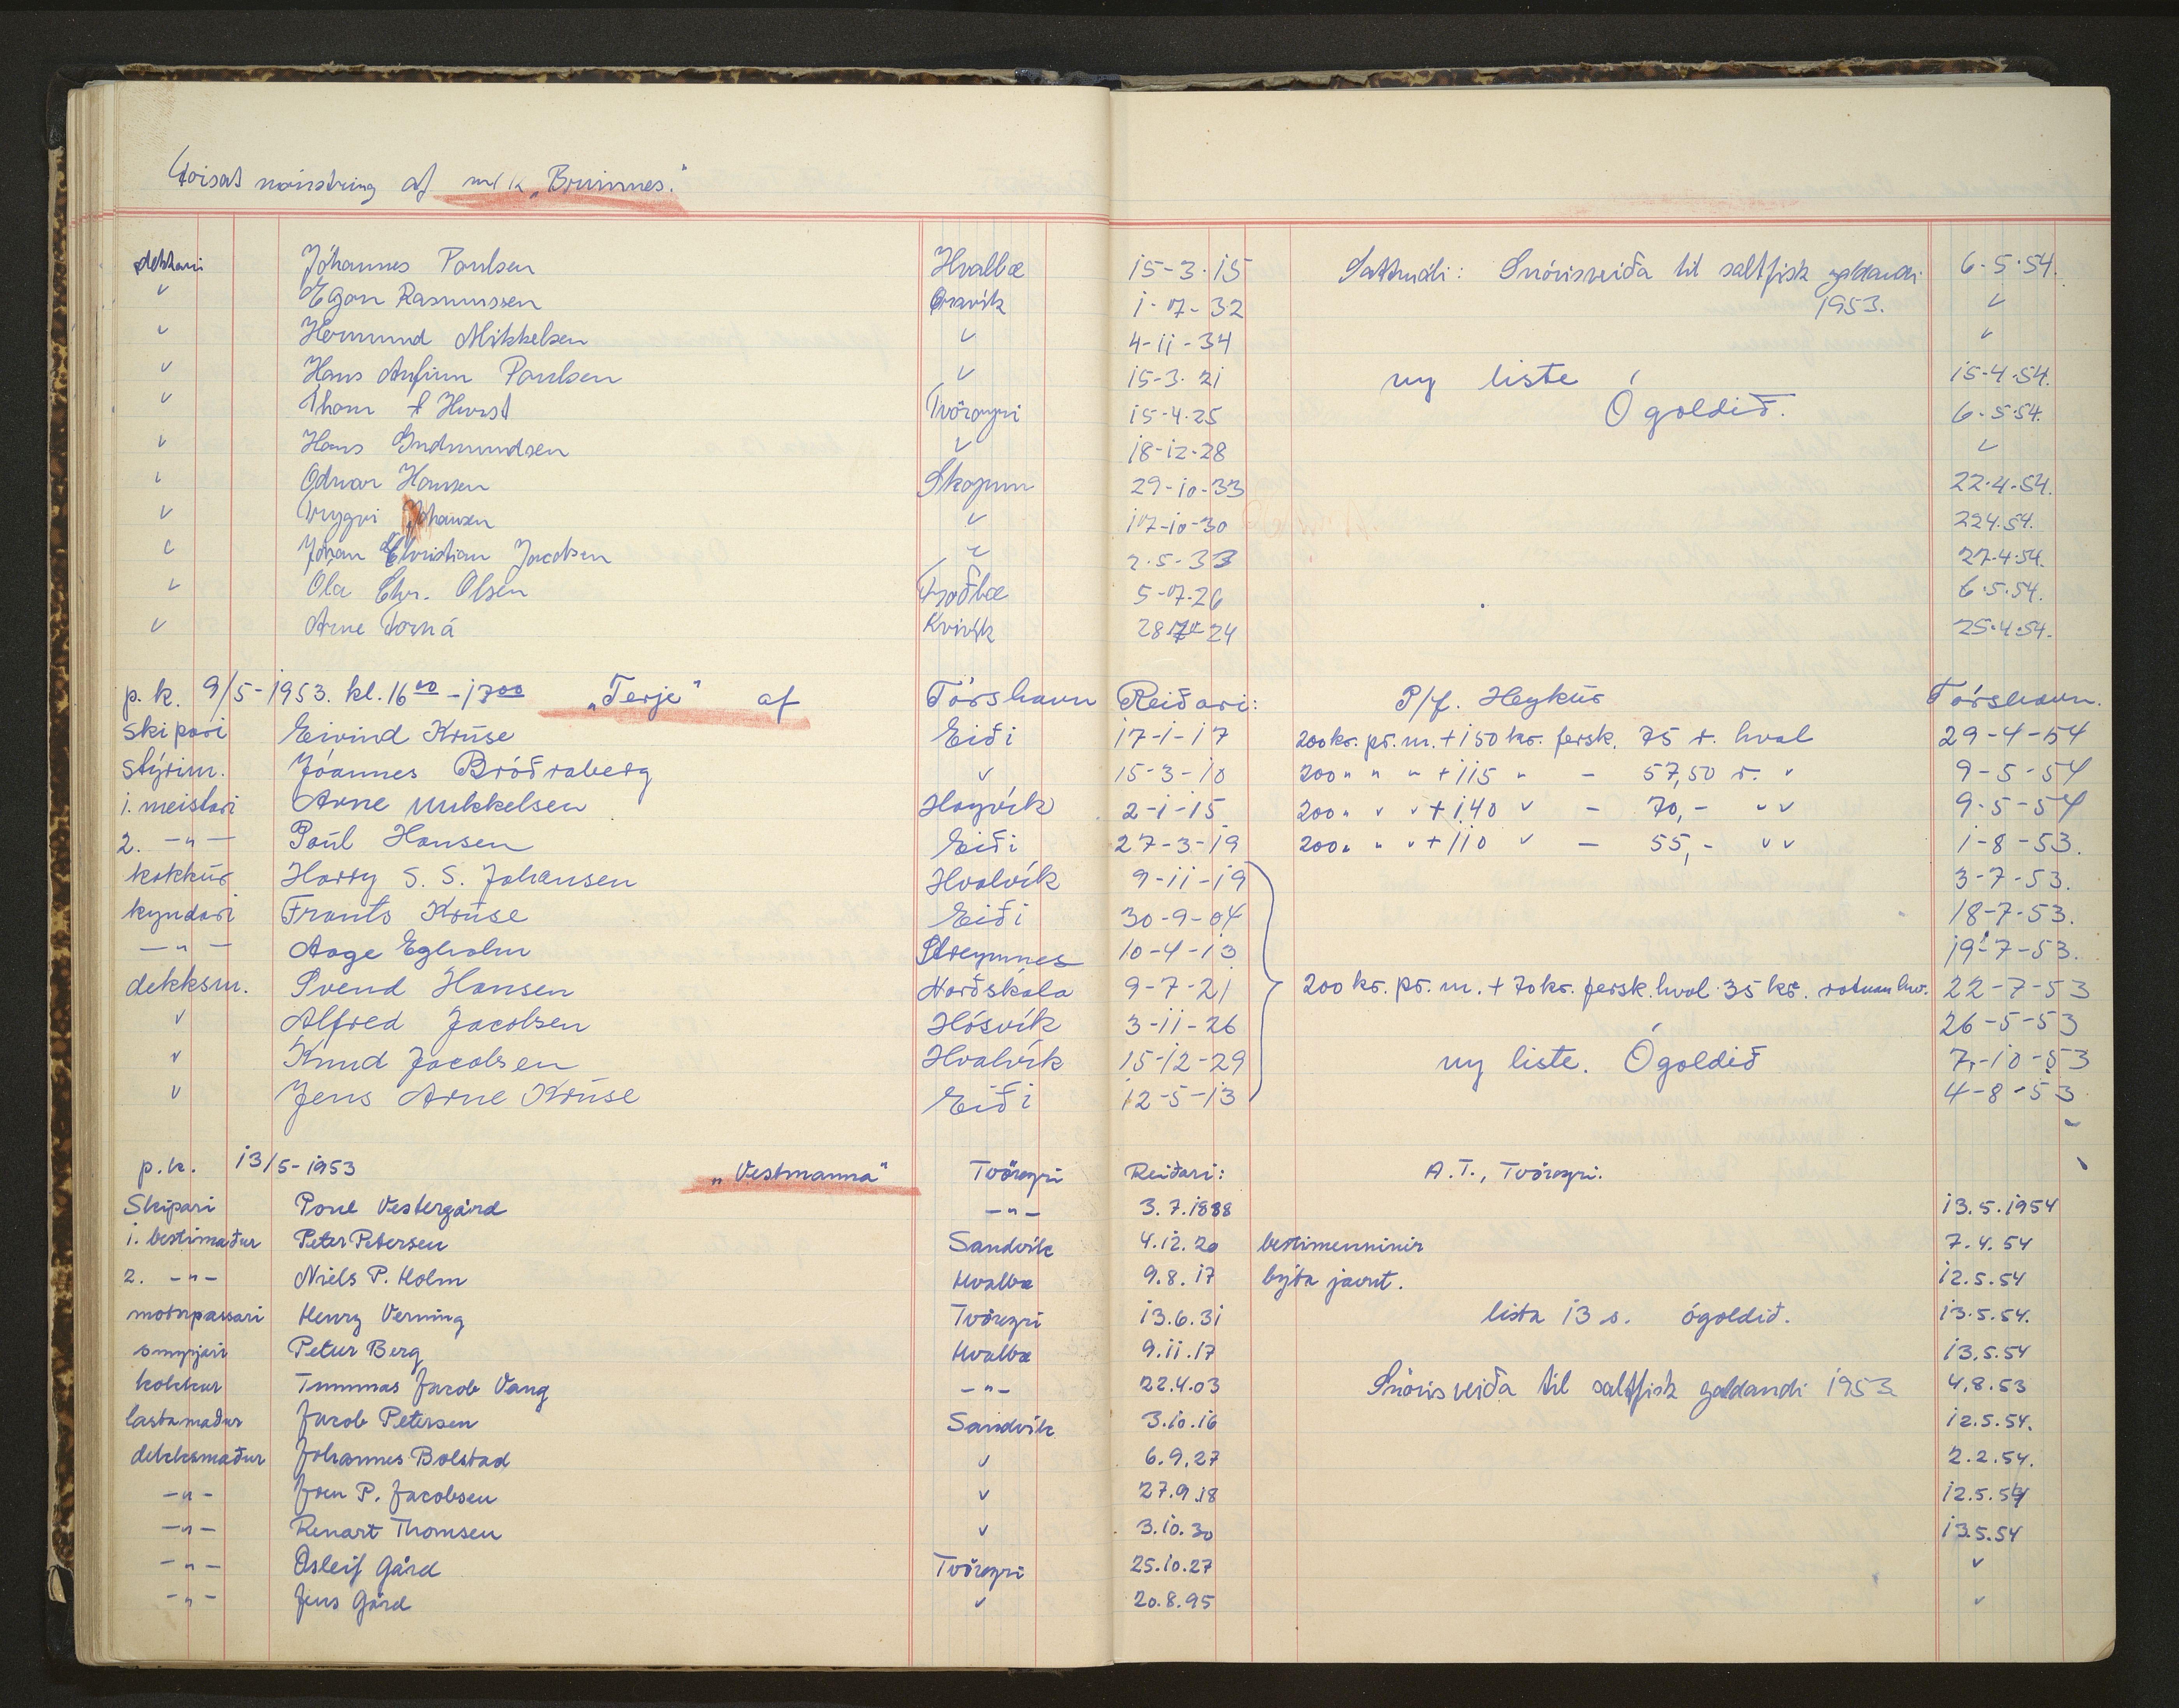 mönstring af m/k „Brimnes."
dekkari Jóhannes Poulsen Hvalbæ 15-3-15 Sáttmáli: Snörisveiða til saltfisk galdandi 6-5-54.
v Egon Rasmussen Øravík 1-7-32 1953. v
v Hermund Mikkelsen v 4-11-34 v
v Hans Anfinn Poulsen v 15-3-21 ny liste 15-4-54.
v Thom Hvost Tvöroyri 15-4-25 Ógoldið. 6-5-54.
v Hans Gudmundsen v 18-12-28 v
v Odvar Hansen Skopun 29-10-33 22-4-54.
v Tryggvi Johansen v 17-10-30 22.4.54.
v Jóhan Christian Jacobsen v 2-5-33 27-4-54.
v Óla Chr. Olsen Froðbæ 5-7-26 6-5-54.
v Arne Kvívík 24 25-4-54.
p.k. 9/5-1953. kl. 16 00 - 17 00 „Terje" af Tórshavn Reiðari: P/f. Heykur Tórshavn.
skipari Eivind Krúse Eiði 17-1-17 200 kr. pr. m. + 150 kr. fersk. 75 r. hval 29-4-54
stýrim. Jóannes Bróðraberg v 15-3-10 200 " " " + 115 " - 57,50 r. " 9-5-54
1. meistari Arne Mikkelsen Hoyvík 2-1-15 200 " " " + 140 " - 70,- " " 9-5-54
2. -"- Poul Hansen Eiði 27-3-19 200 " " " + 110 " - 55,- " " 1-8-53.
kokkur Harry S. S. Johansen Hvalvík 9-11-19 3-7-53.
kyndari Frants Krúse Eiði 30-9-04 18-7-53.
-"- Aage Egholm Streymnes 10-4-13 19-7-53.
dekksm. Svend Hansen Norðskála 9-7-21 200 kr. pr. m. + 70 kr. fersk. hval 35 kr. rotnan hv. 22-7-53
v Alfred Jacobsen Hósvík 3-11-26 26-5-53
v Knud Jacobsen Hvalvík 15-12-29 ny liste. Ógoldið 7-10-53
v Jens Arne Krúse Eiði 12-5-13 4-8-53
p.k. 13/5-1953 „Vestmanna" Tvöroyri Reiðari: A.T., Tvöroyri.
Skipari Poul Vestergård -"- 3.7.1888 13.5.1954
1. bestimaður Peter Petersen Sandvík 4.12.20 bestimenninir 7.4.54
2. -"- Niels P. Holm Hvalba 9.8.17 býta javnt. 12.5.54
motorpassari Henry Verning Tvöroyri 13.6.31 lista 13 s. ógoldið. 13.5.54.
smyrjari Petur Berg Hvalba 9.11.17 13.5.54
kokkur Tummas Jacob Vang -"- 22.4.03 Snörisveiða til saltfisk galdandi 1953 4.8.53
lastamaður Jacob Petersen Sandvík 3.10.16 12.5.54.
dekksmaður Johannes Bolstad v 6.9.27 2.2.54.
-"- Joen P. Jacobsen v 27.9.18 12.5.54
-"- Renart Thomsen v 3.10.30 13.5.54
-"- Osleif Gård Tvöroyri 25.10.27 v
-"- Jens Gård v 20.8.95 v